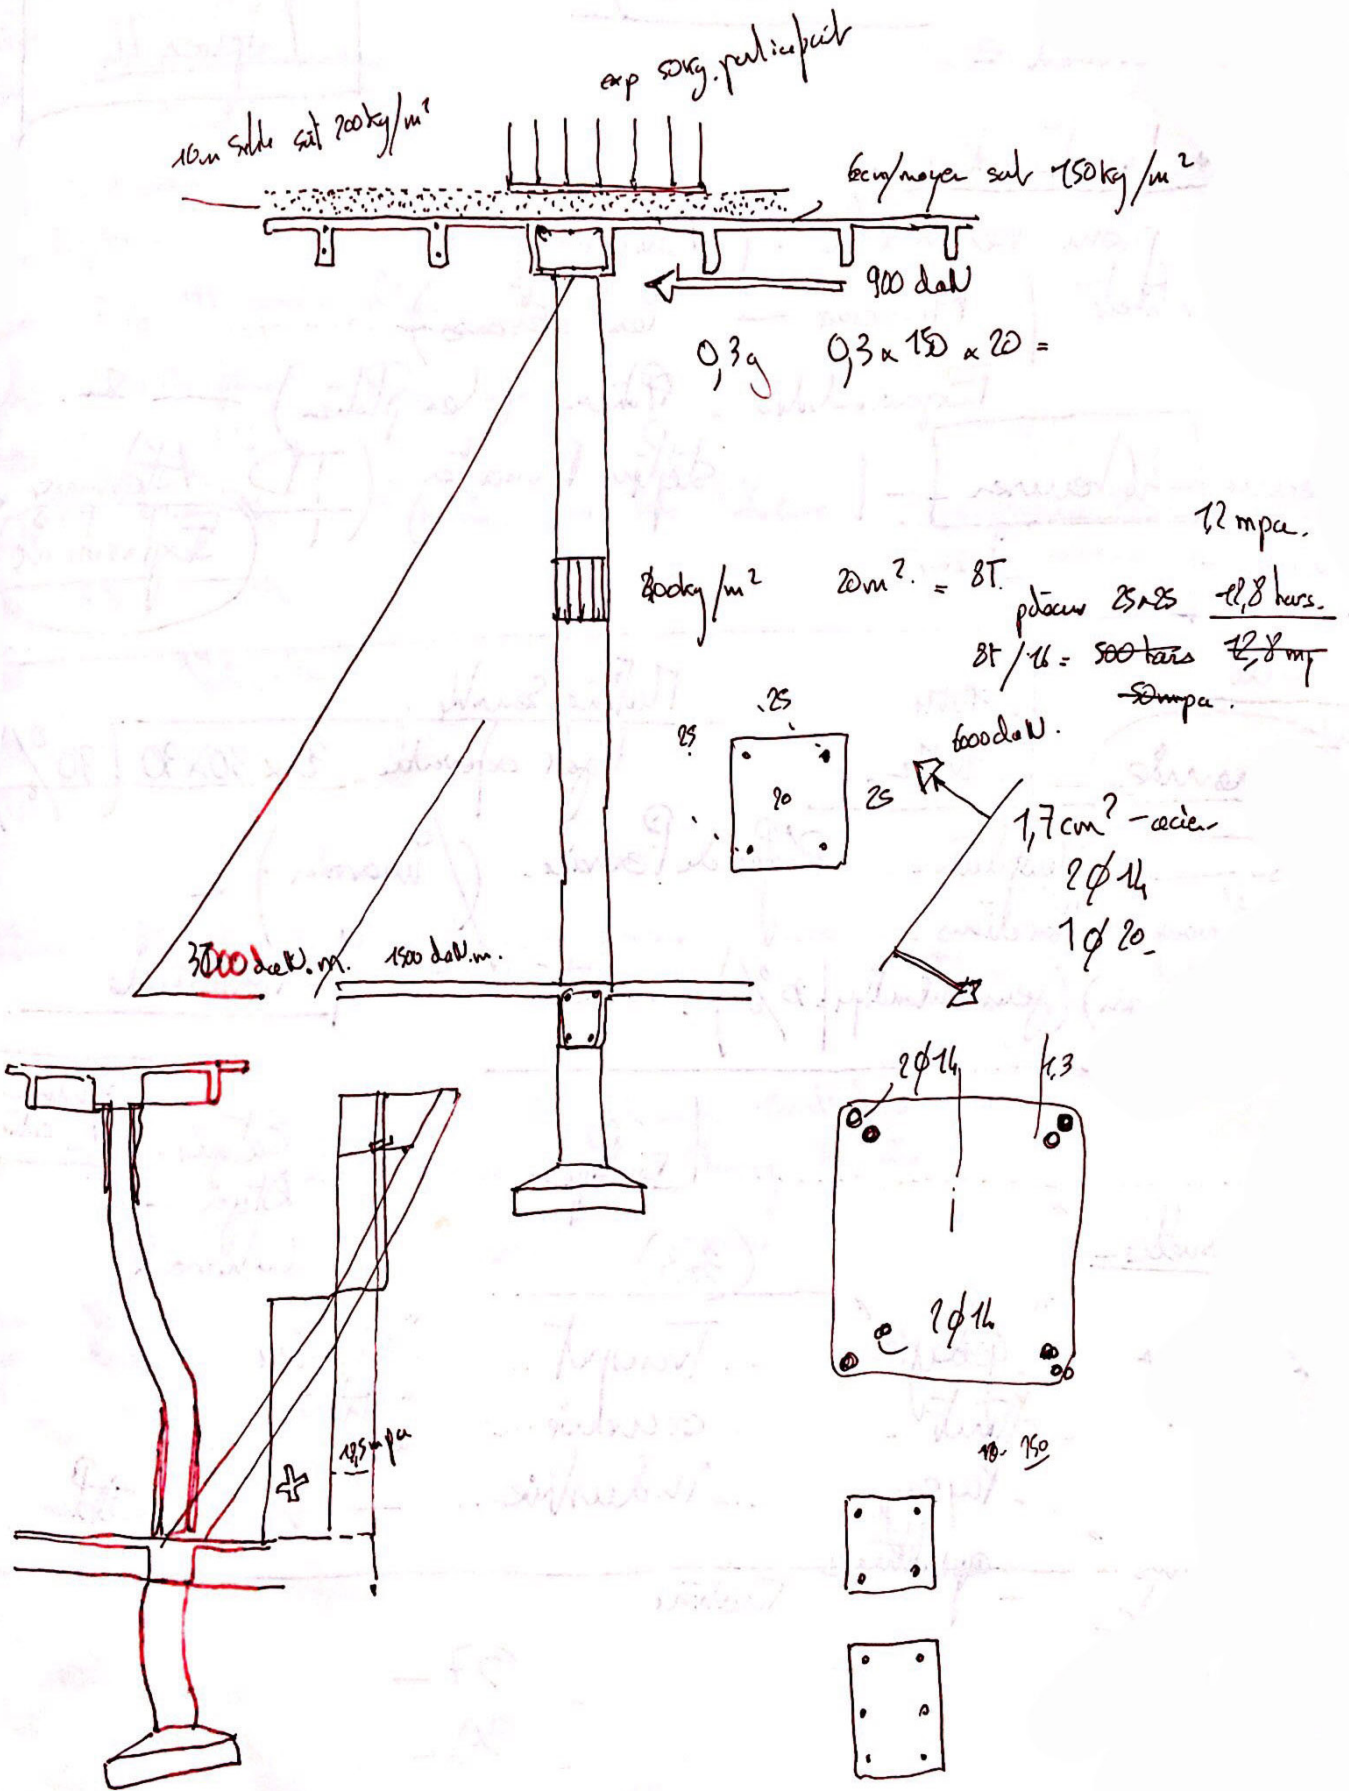 exp 50kg.
10cm sable soit 200kg/m²
6cm/moyen soit 150kg/m²
900 daN
0,3g 0,3 x 150 x 20 =
1,2 mpa.
400kg/m² 20m². = 8T.
poteau 25x25 12,8 bars.
8T/16 = 500 bars 12,8 mp
50mpa.
25
25
25
20
6000 daN.
1,7 cm² - acier
2ϕ14
1ϕ20
3000 daN.m. 1500 daN.m.
2ϕ14
1,3
2ϕ14
12,5 mpa
150